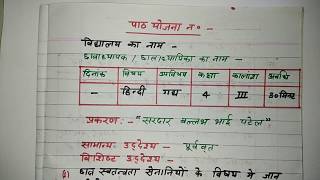 पाठ योजना न० -
विद्यालय का नाम -
छात्राध्यापक / छात्राध्यापिका का नाम -
दिनांक विषय उपविषय कक्षा कालांश अवधि
- हिन्दी गद्य 4 III 30 मिनट
प्रकरण:- "सरदार बल्लभ भाई पटेल"
सामान्य उद्देश्य - पूर्ववत
विशिष्ट उद्देश्य -
छात्र स्वतन्त्रता सेनानियों के विषय में जान